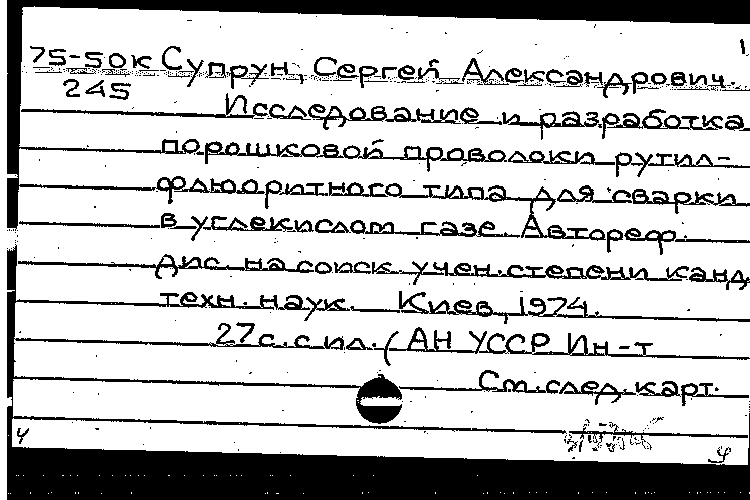 1
75-50к Супрун, Сергей Александрович.
245
Исследование и разработка
порошковой проволоки рутил-
флюоритного типа для сварки
в углекислом газе. Автореф.
дис. на соиск. учен. степени канд.
техн. наук. Киев, 1974.
27с. с ил. (АН УССР. Ин-т
См. след. карт.